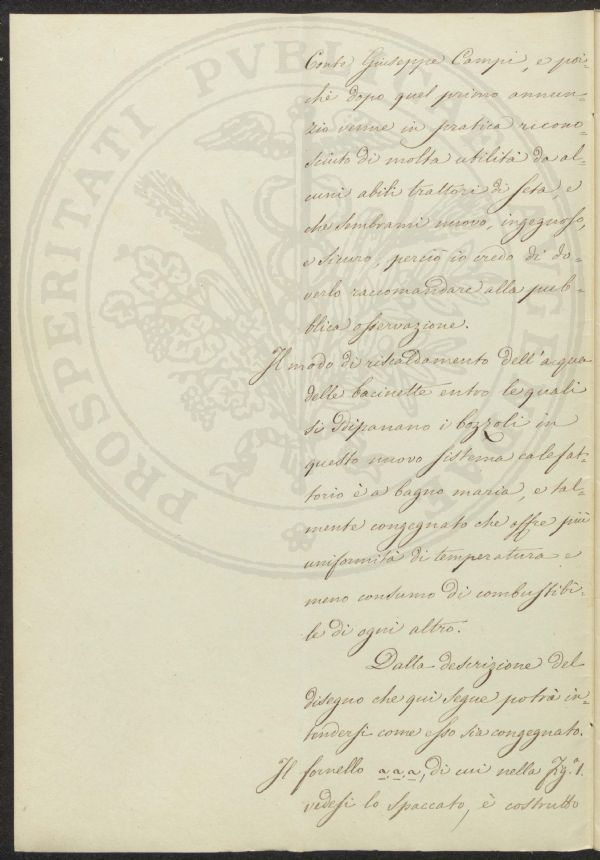 Conte Giuseppe Campi, e poi-
chè dopo quel primo annun-
zio venne in pratica ricono-
sciuto di molta utilità da al-
cuni abili trattori di seta, e
che sembrami nuovo, ingegnoso,
e sicuro, perciò io credo di do-
verlo raccomandare alla pub-
blica osservazione.
Il modo di riscaldamento dell'acqua
delle bacinette entro le quali
si dipanano i bozzoli in
questo nuovo sistema calefat-
torio è a bagno maria, e tal-
mente congegnato che offre più
uniformità di temperatura e
meno consumo di combustibi-
le di ogni altro.
Dalla descrizione del
disegno che qui segue potrà in-
tendersi come esso sia congegnato.
Il fornello a,a,a, di cui nella Fig.ª 1.
vedesi lo spaccato, è costrutto
PROSPERITATI PVBLICAE